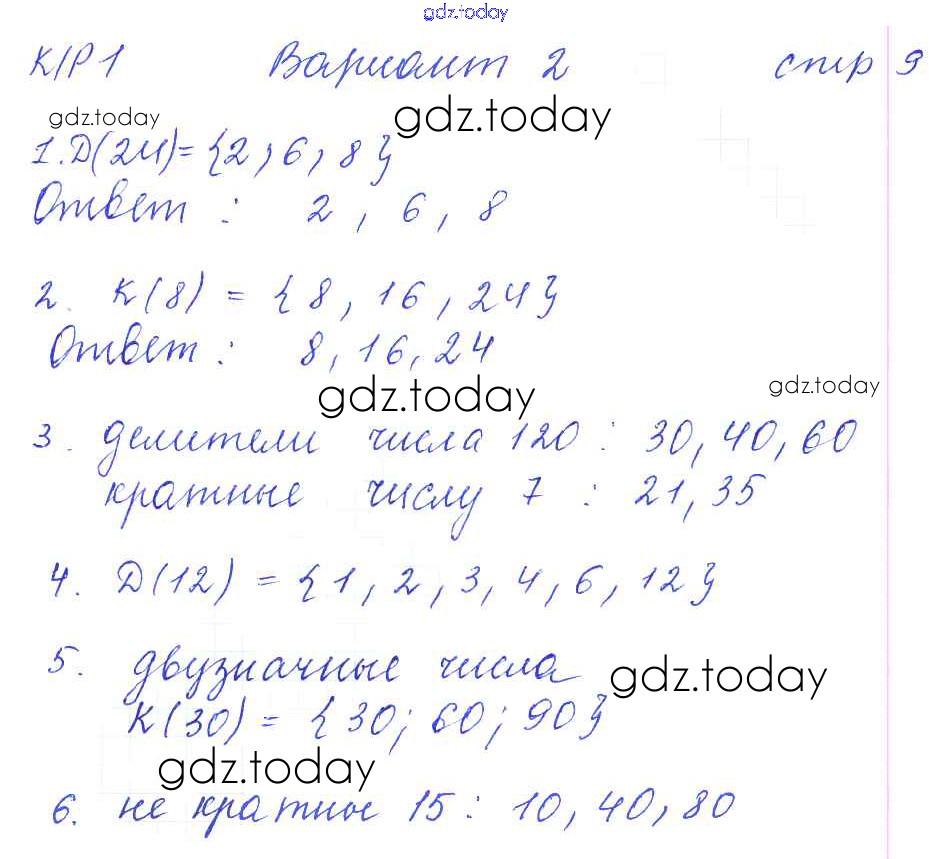 gdz.today
К/Р 1 Вариант 2 стр 9
gdz.today gdz.today
1. Д(24)= {2, 6, 8}
Ответ : 2 , 6 , 8
2. К(8) = {8, 16, 24}
Ответ : 8, 16, 24
gdz.today gdz.today
3. делители числа 120 : 30, 40, 60
кратные числу 7 : 21, 35
4. Д(12) = {1, 2, 3, 4, 6, 12}
5. двузначные числа gdz.today
К(30) = {30; 60; 90}
gdz.today
6. не кратные 15 : 10, 40, 80